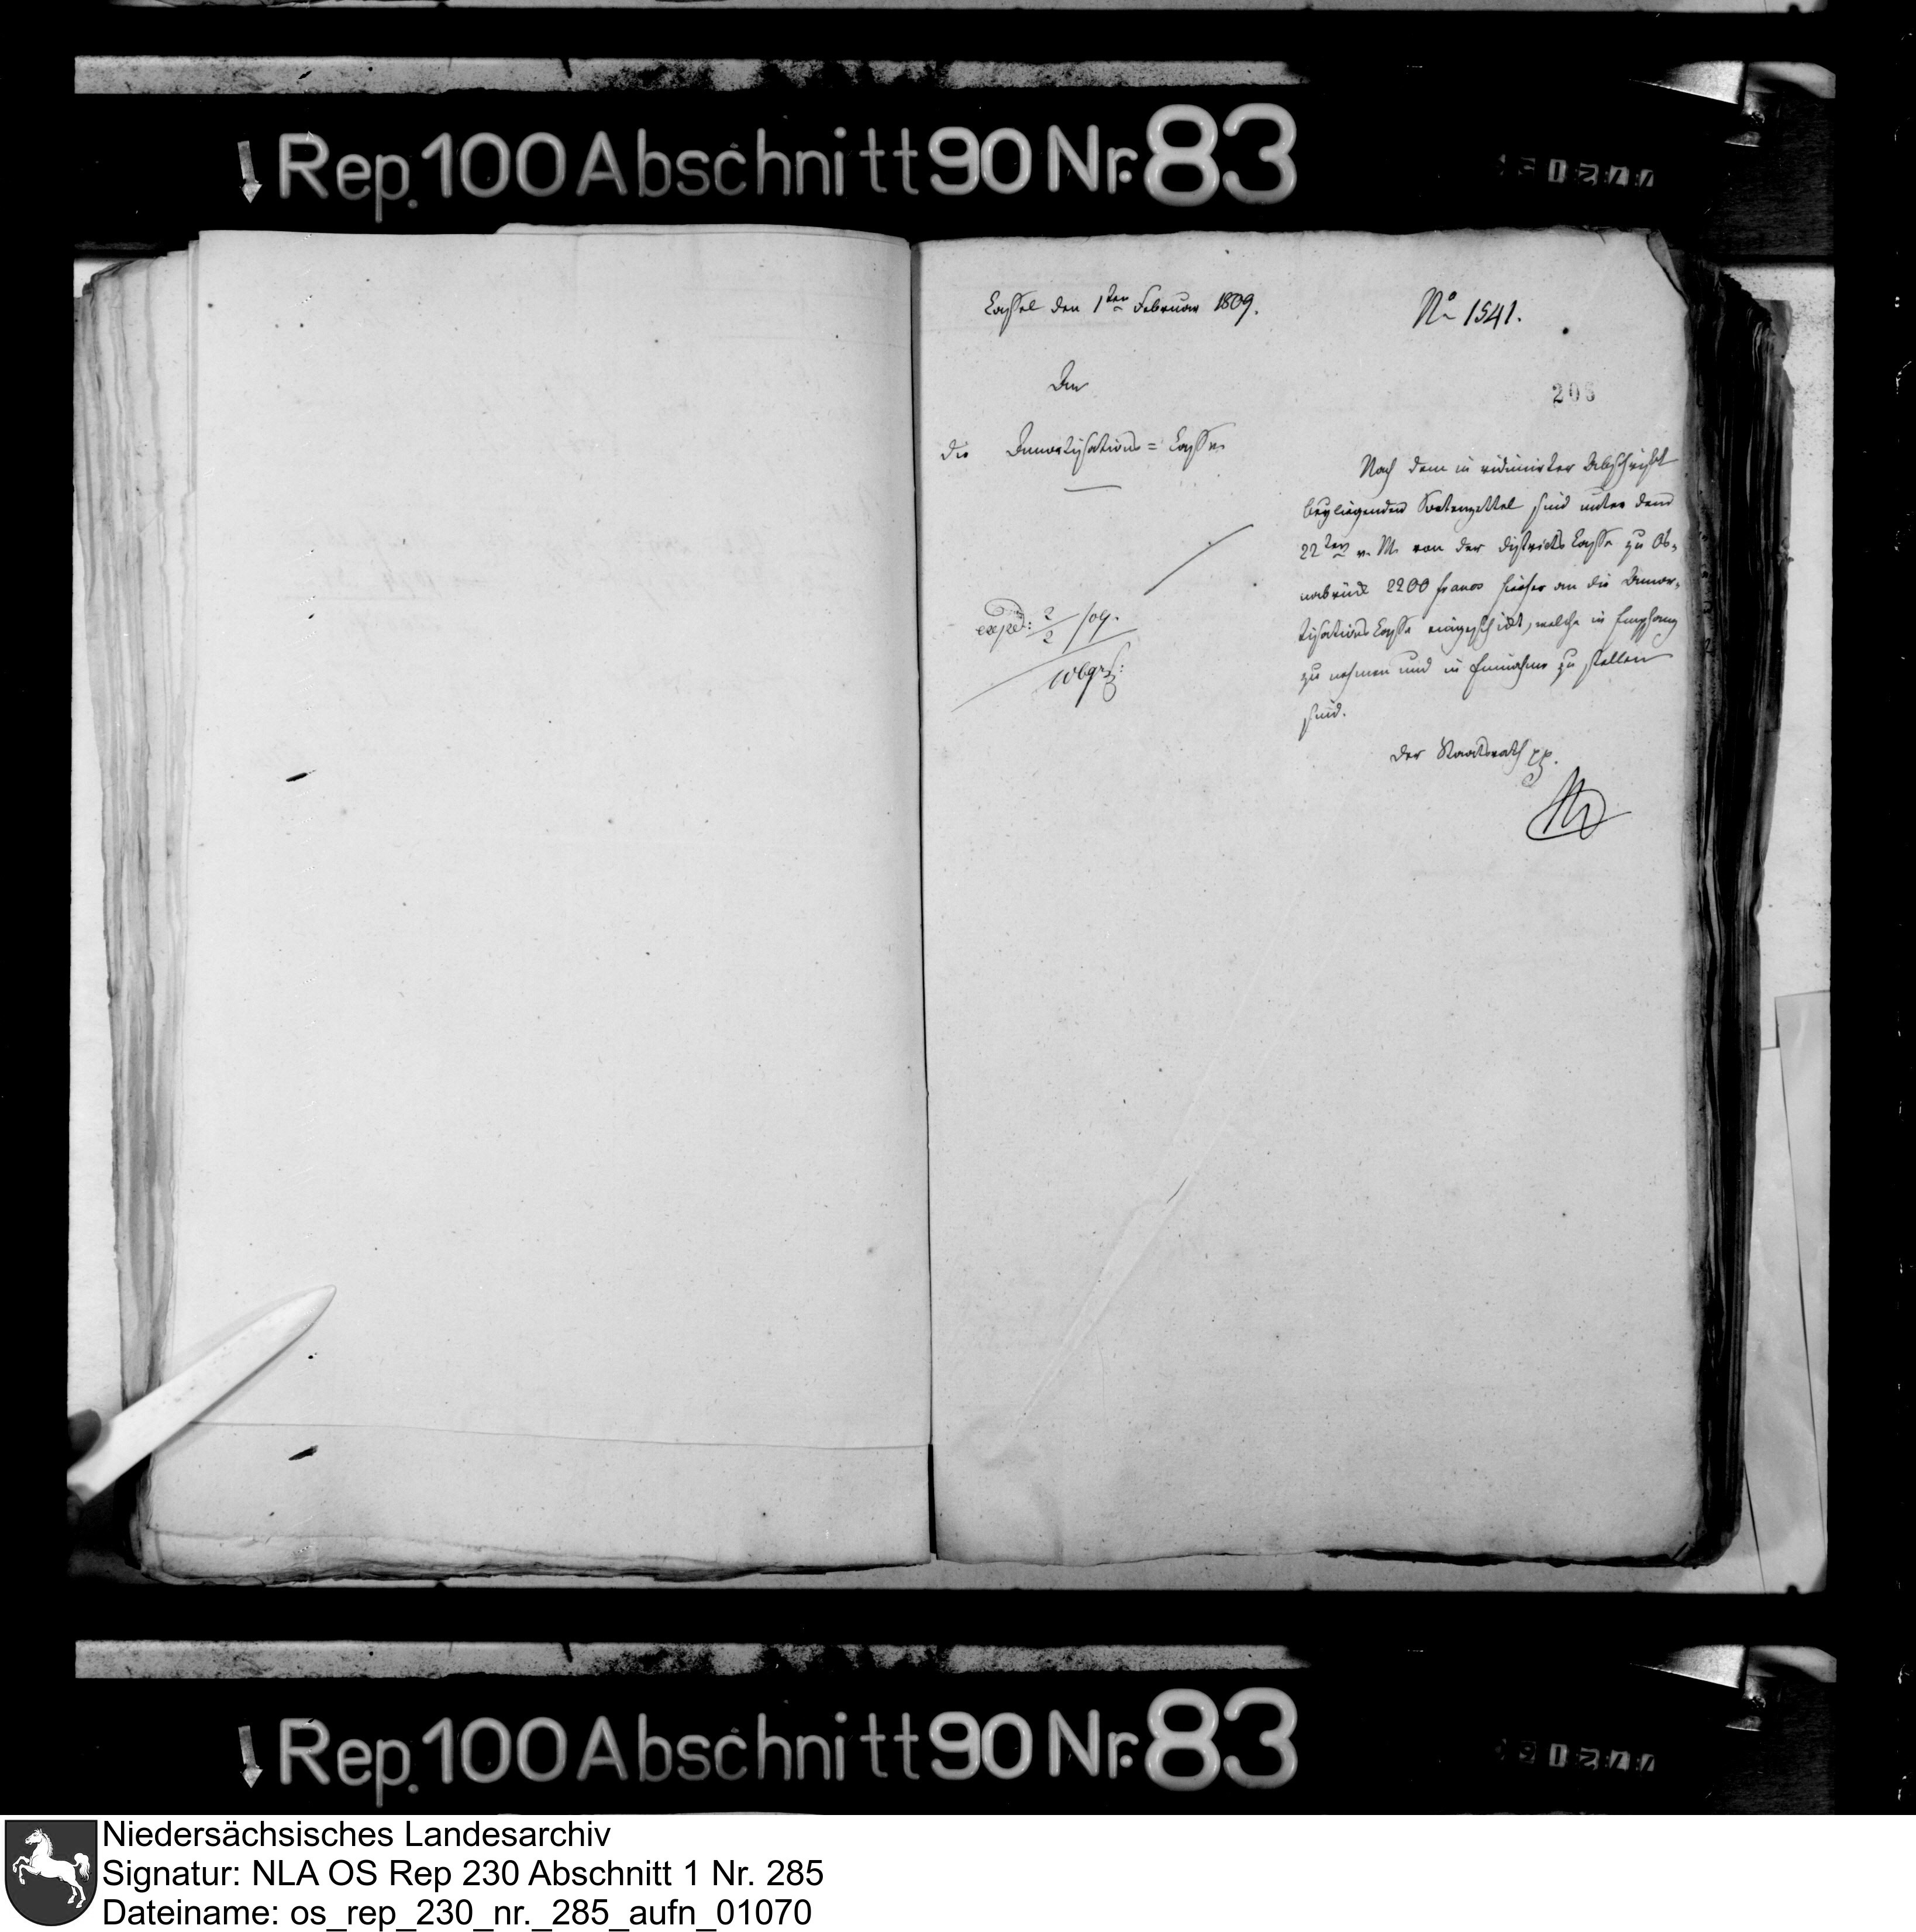 Rep. 100 Abschnitt 90 Nr. 83
Cassel den 1ten Februar 1809.
No 1541.
An
206
die Amortisations=Casse
Nach dem in vidimirter Abschrift
beyliegenden Sortenzettel sind unter dem
22ten v. M. von der Districts Casse zu Os-
nabrück 2200 francs hieher an die Amor-
tisations Casse eingeschickt, welche in Empfang
zu nehmen und in Einnahme zu stellen
sind.
exped: 2/2 /09.
der Staatsrath pp.
Rep. 100 Abschnitt 90 Nr. 83
Niedersächsisches Landesarchiv
Signatur: NLA OS Rep 230 Abschnitt 1 Nr. 285
Dateiname: os_rep_230_nr._285_aufn_01070